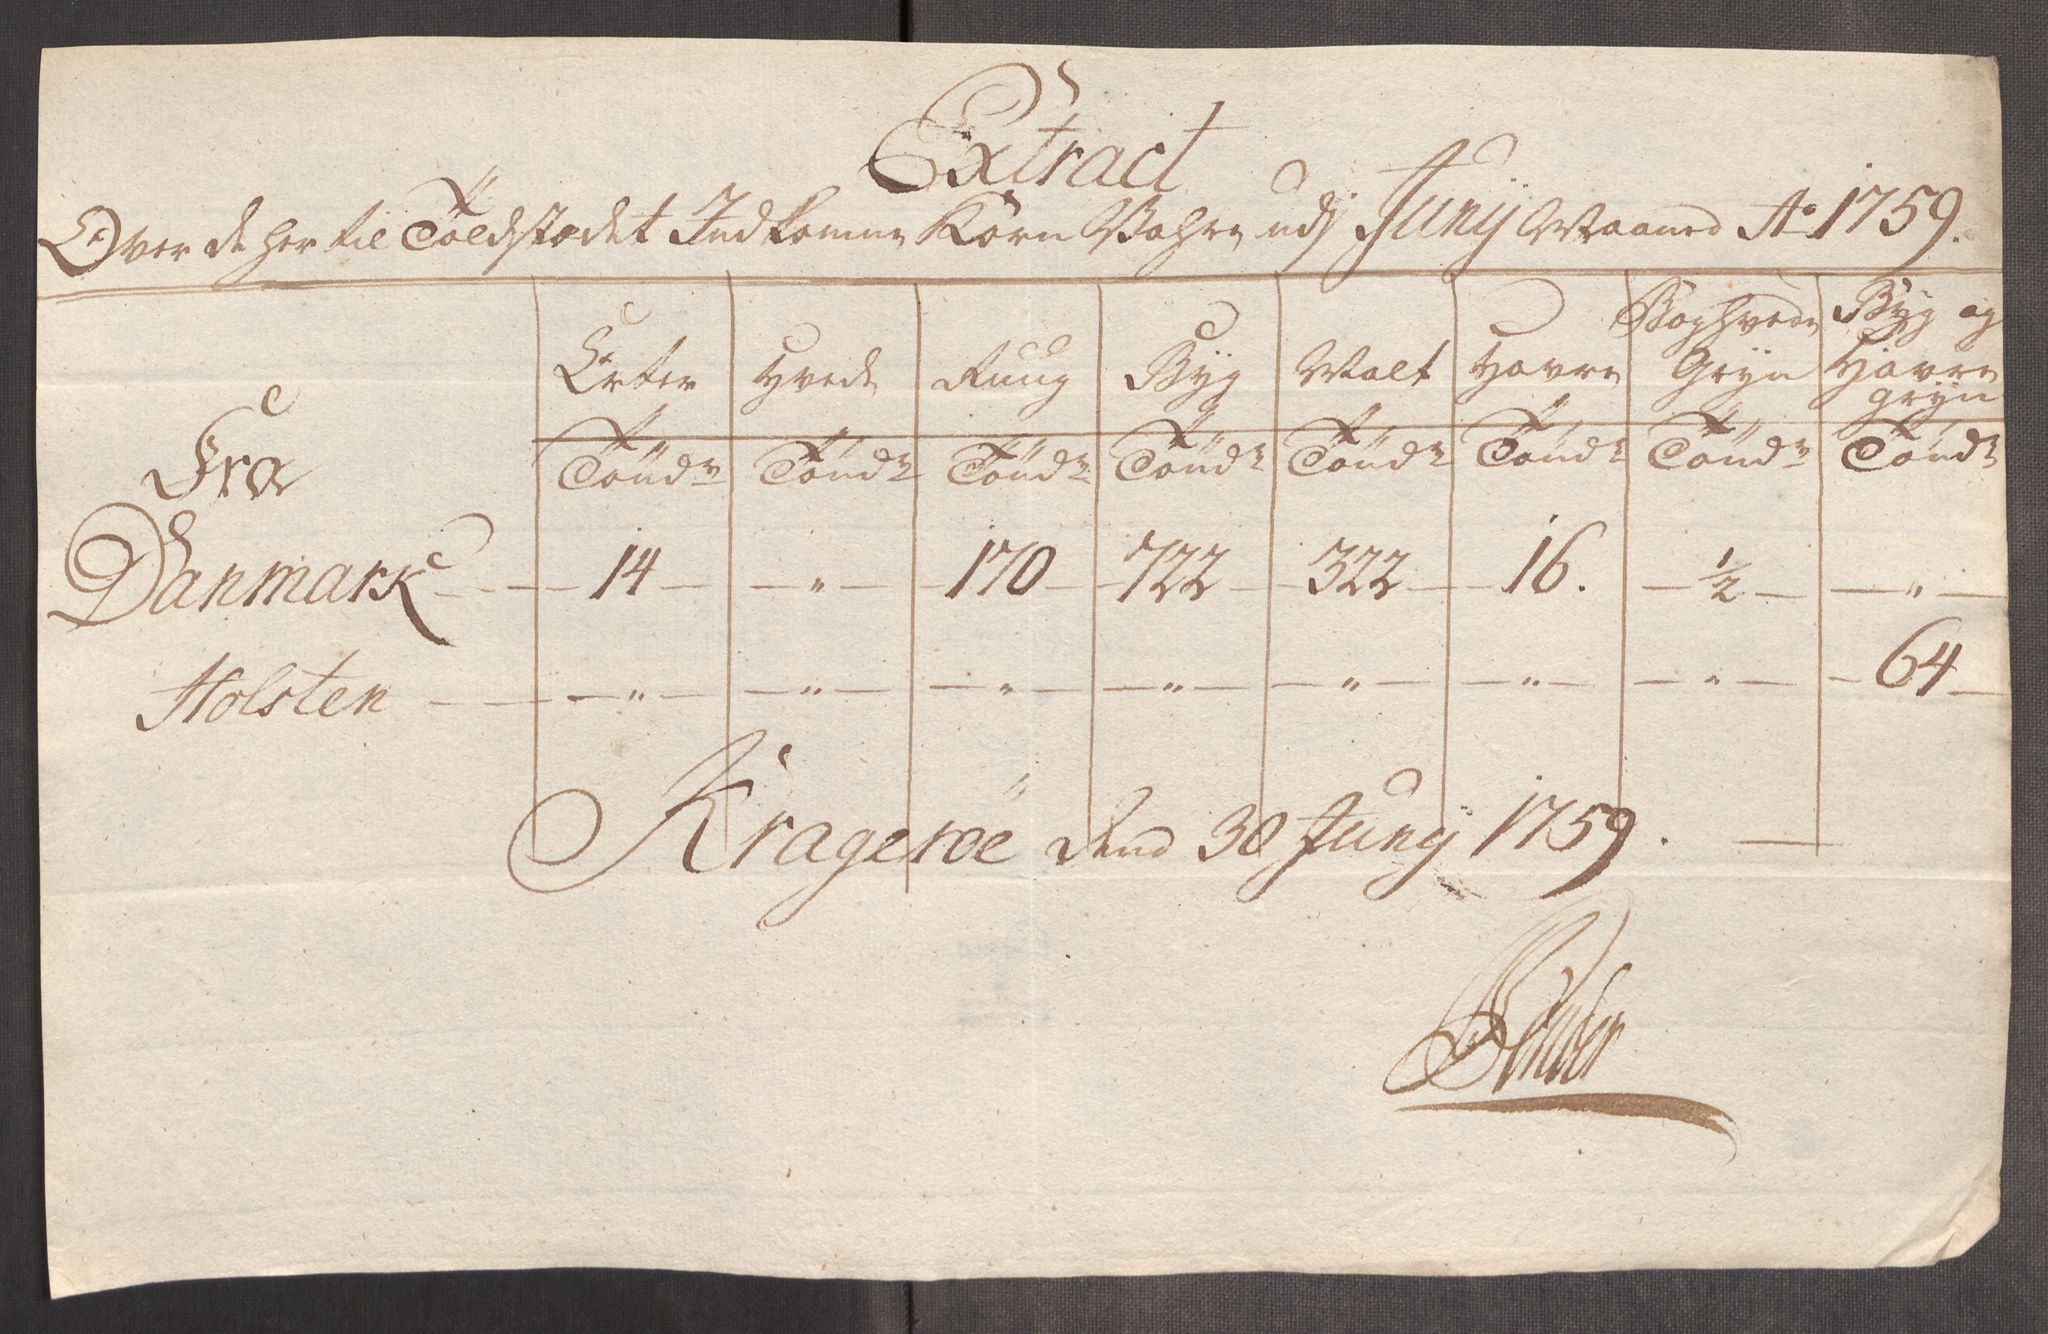 Extract
Over de her til Toldstædet Indkomne Körn Vahre udj Junij Maaned Ao 1759.
Erter Hvede Ruug Byg Malt Havre Boghvede Gryn Byg og Havre gryn
Fra Tönder Tönder Tönder Tönder Tönder Tönder Tönder Tönder
Danmark — 14 — — " — 170 — 722 — 322 — 16. — ½ — — " —
Holsten — — " — — " — — " — — " — — " — — " — — " — — 64 —
Krageröe dend 30 Junij 1759.